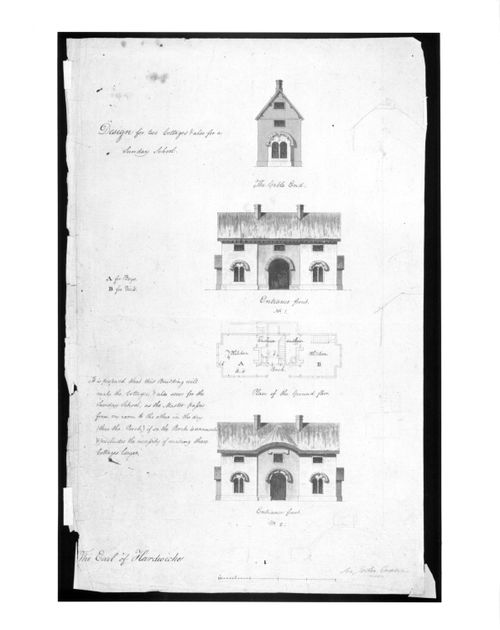 Design for two Cottages & also for a
Sunday School.
The Gable End.
Entrance front.
No. 1.
A for Boys.
B for Girls.
Kitchen
Kitchen
A
B
Porch
Plan of the Ground floor
It is proposed that this Building will
make the Cottages & also serve for the
Sunday School, as the Master passes
from one room to the other in the day
thro the Porch,
the necessity of making these
Cottages larger.
Entrance front
No. 2.
The Earl of Hardwicke